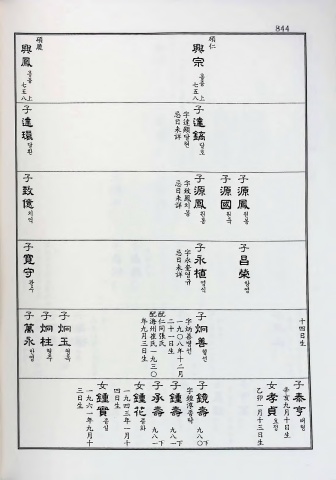 844
碩仁
興宗 흥종 七五八 上
碩慶
興鳳 흥봉 七五八 上
子 達鎬 달호
字達顯 달현
忌日未詳
子 達環 달환
子 源鳳 원봉
子 源國 원국
子 源鳳 원봉
字致鳳 치봉
忌日未詳
子 致億 치억
子 昌榮 창영
子 永植 영식
字永奎 영규
忌日未詳
子 寬守 관수
十四日生
子 炯善 형선
字炳善 병선
一九〇八年十二月
二十一日生
配仁同張氏
配海州崔氏一九三〇
年九月三日生
子 炯玉 형옥
子 炯柱 형주
子 萬永 만영
子 泰亨 태형
辛亥九月十日生
女 孝貞 효정
乙卯一月十三日生
子 鏡壽 九八〇 下
字經淳
子 鍾壽 九八一 下
子 承壽 九八一 下
女 鍾花 종화
一九四三年一月十
四日生
女 鍾實 종실
一九六一年九月十
三日生